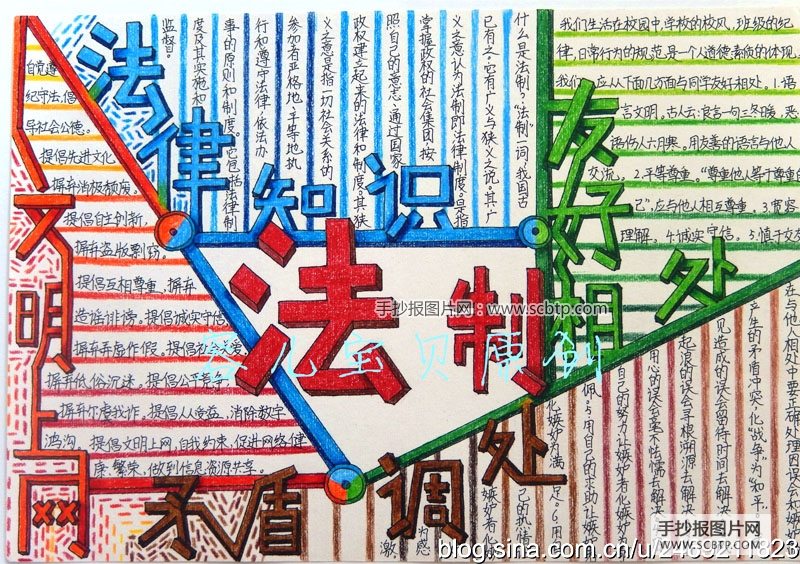 法制
法律知识
什么是法制？“法制”一词，我国古
已有之。它有广义与狭义之说。其广
义之意认为法制即法律制度。是指
掌握政权的社会集团按
照自己的意志，通过国家
政权建立起来的法律和制度。其狭
义之意是指一切社会关系的
参加者严格地、平等地执
行和遵守法律，依法办
事的原则和制度。它包括法律制
度及其实施和
监督。
友好相处
我们生活在校园中，学校的校风、班级的纪
律，日常行为的规范，是一个人道德素质的体现。
我们应从下面几方面与同学友好相处。1.语
言文明。古人云：良言一句三冬暖，恶
语伤人六月寒。用友善的语言与他人
交流。2.平等尊重。“尊重他人等于尊重自
己”，应与他人相互尊重。3.宽容
理解。4.诚实守信。5.慎于交友
文明上网
自觉遵
纪守法，倡
导社会公德。
提倡先进文化，
摒弃消极颓废。
提倡自主创新，
摒弃盗版剽窃。
提倡互相尊重，摒弃
造谣诽谤。提倡诚实守信，
摒弃弄虚作假。提倡社会关爱，
摒弃低俗沉迷。提倡公平竞争，
摒弃尔虞我诈。提倡人人受益，消除数字
鸿沟。提倡文明上网，自我约束，促进网络健
康、繁荣，做到信息资源共享。
矛盾调处
在与他人相处中要正确处理因误会和嫉妒
产生的矛盾冲突，化“战争”为“和平”。
见造成的误会留待时间去解决
起浪的误会寻根溯源去解决
用心的误会毫不怯懦去解决
自己的努力让嫉妒者化嫉妒为
佩。5用自己的求助让嫉妒
化嫉妒为满足。6用
己的热情
嫉妒者化
为感
激。
手抄报图片网：www.scbtp.com
婴儿宝贝原创
手抄报图片网
WWW.SCBTP.COM
blog.sina.com.cn/u/2469211823